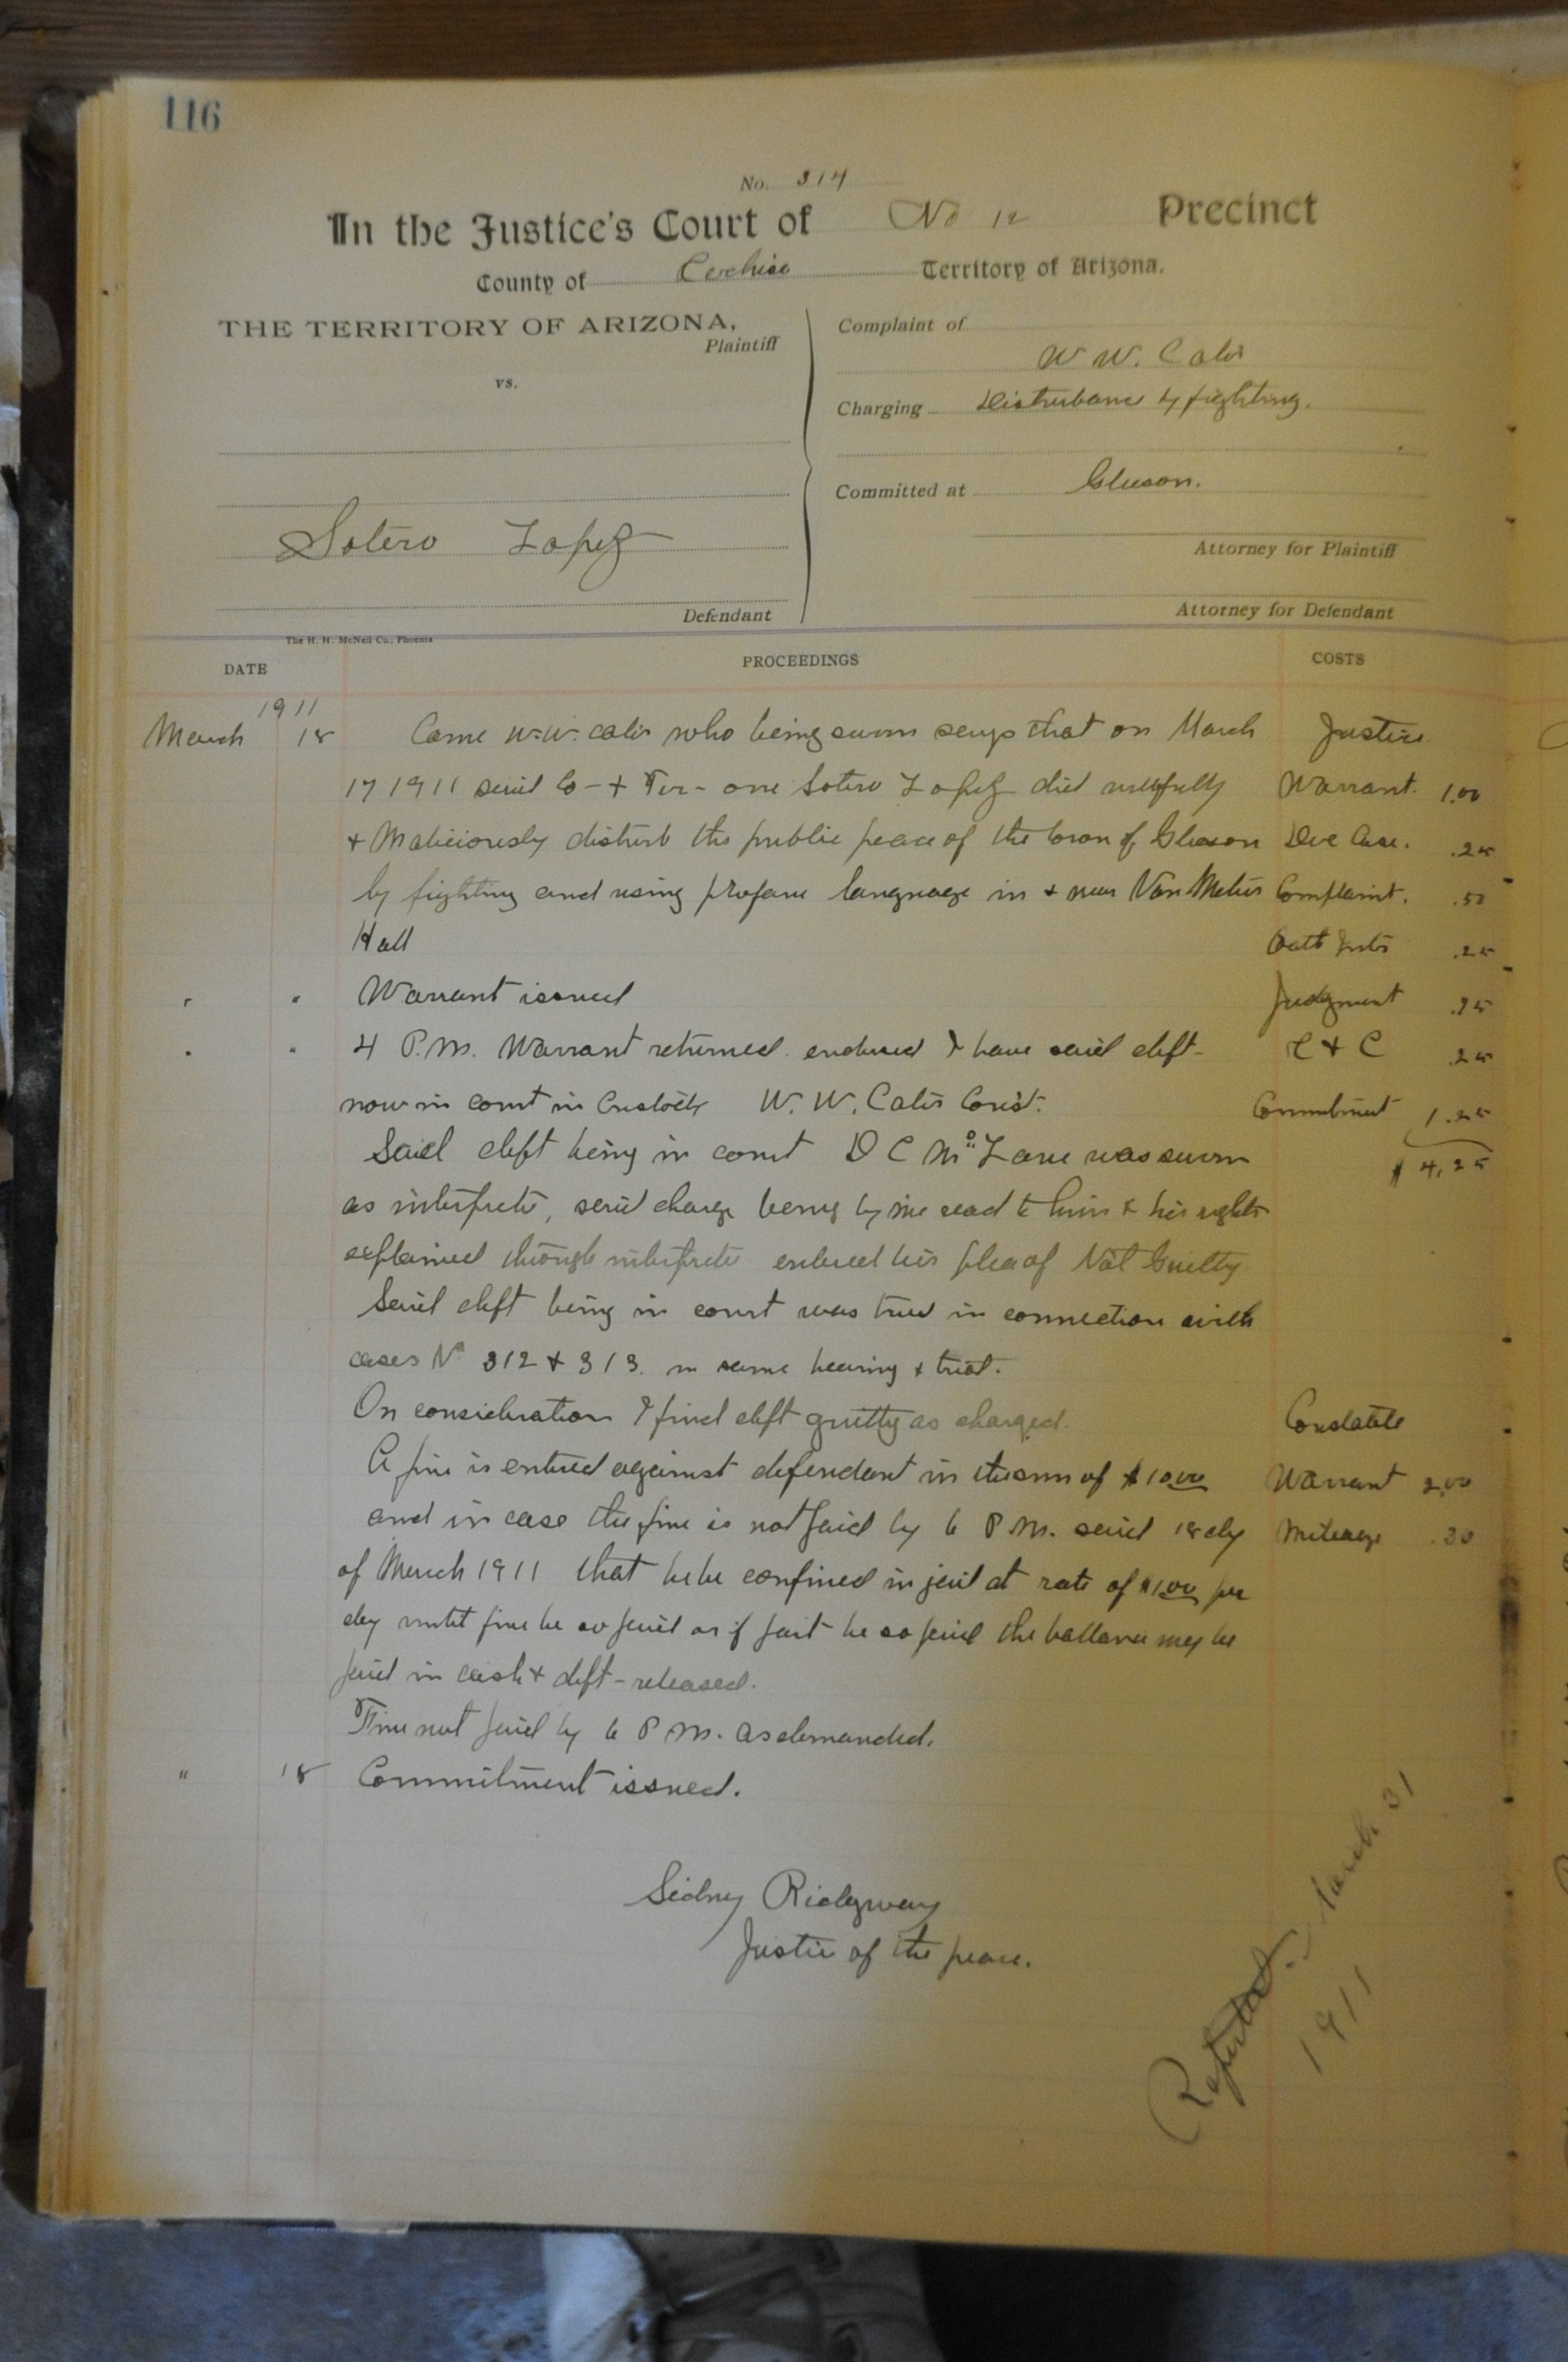 116
No. 314
In the Justice's Court of No 12 Precinct
County of Cochise Territory of Arizona.
THE TERRITORY OF ARIZONA,
Plaintiff
vs.
Sotero Lopez
Defendant
Complaint of
W. W. Cates
Charging Disturbance by fighting.
Committed at Gleeson.
Attorney for Plaintiff
Attorney for Defendant
The H. H. McNeil Co., Phoenix
DATE PROCEEDINGS COSTS
1911
March 18 Came W. W. Cates who being sworn says that on March Justice
17 1911 said Co - + Ter - one Sotero Lopez did willfully Warrant. 1.00
+ Maliciously disturb the public peace of the town of Gleeson Case. .25
by fighting and using profane language in + near Van Meters Complaint. .50
Hall Oath .25
" " Warrant issued Judgment .75
" " 4 P.M. Warrant returned endorsed I have said deft - .25
now in court in Custody W. W. Cates Const. Commitment 1.25
Said deft being in court D C McLane was sworn $ 4.25
as interpreter, said charge being by me read to him & his rights
explained through interpreter entered his plea of Not Guilty
Said deft being in court was tried in connection with
cases No 312 + 313. in same hearing + trial.
On consideration I find deft guilty as charged. Constable
A fine is entered against defendant in the sum of $10.00 Warrant 2.00
and in case the fine is not paid by 6 P.M. said 18 day Mileage .30
of March 1911 that he be confined in jail at rate of $1.00 per
day until fine be so paid or if part be so paid the ballance may be
paid in cash + deft - released.
Fine not paid by 6 P.M. as demanded.
" 18 Commitment issued.
Sidney Ridgway
Justice of the peace.
Reported March 31
1911